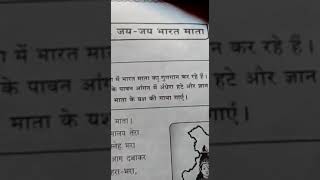 जय-जय भारत माता
में भारत माता का गुणगान कर रहे हैं।
के पावन आंगन में अंधेरा हटे और ज्ञान
माता के यश की गाथा गाएं।
माता।
मालय तेरा
स्नेह भरा
आग दबाकर
हरा-भरा,